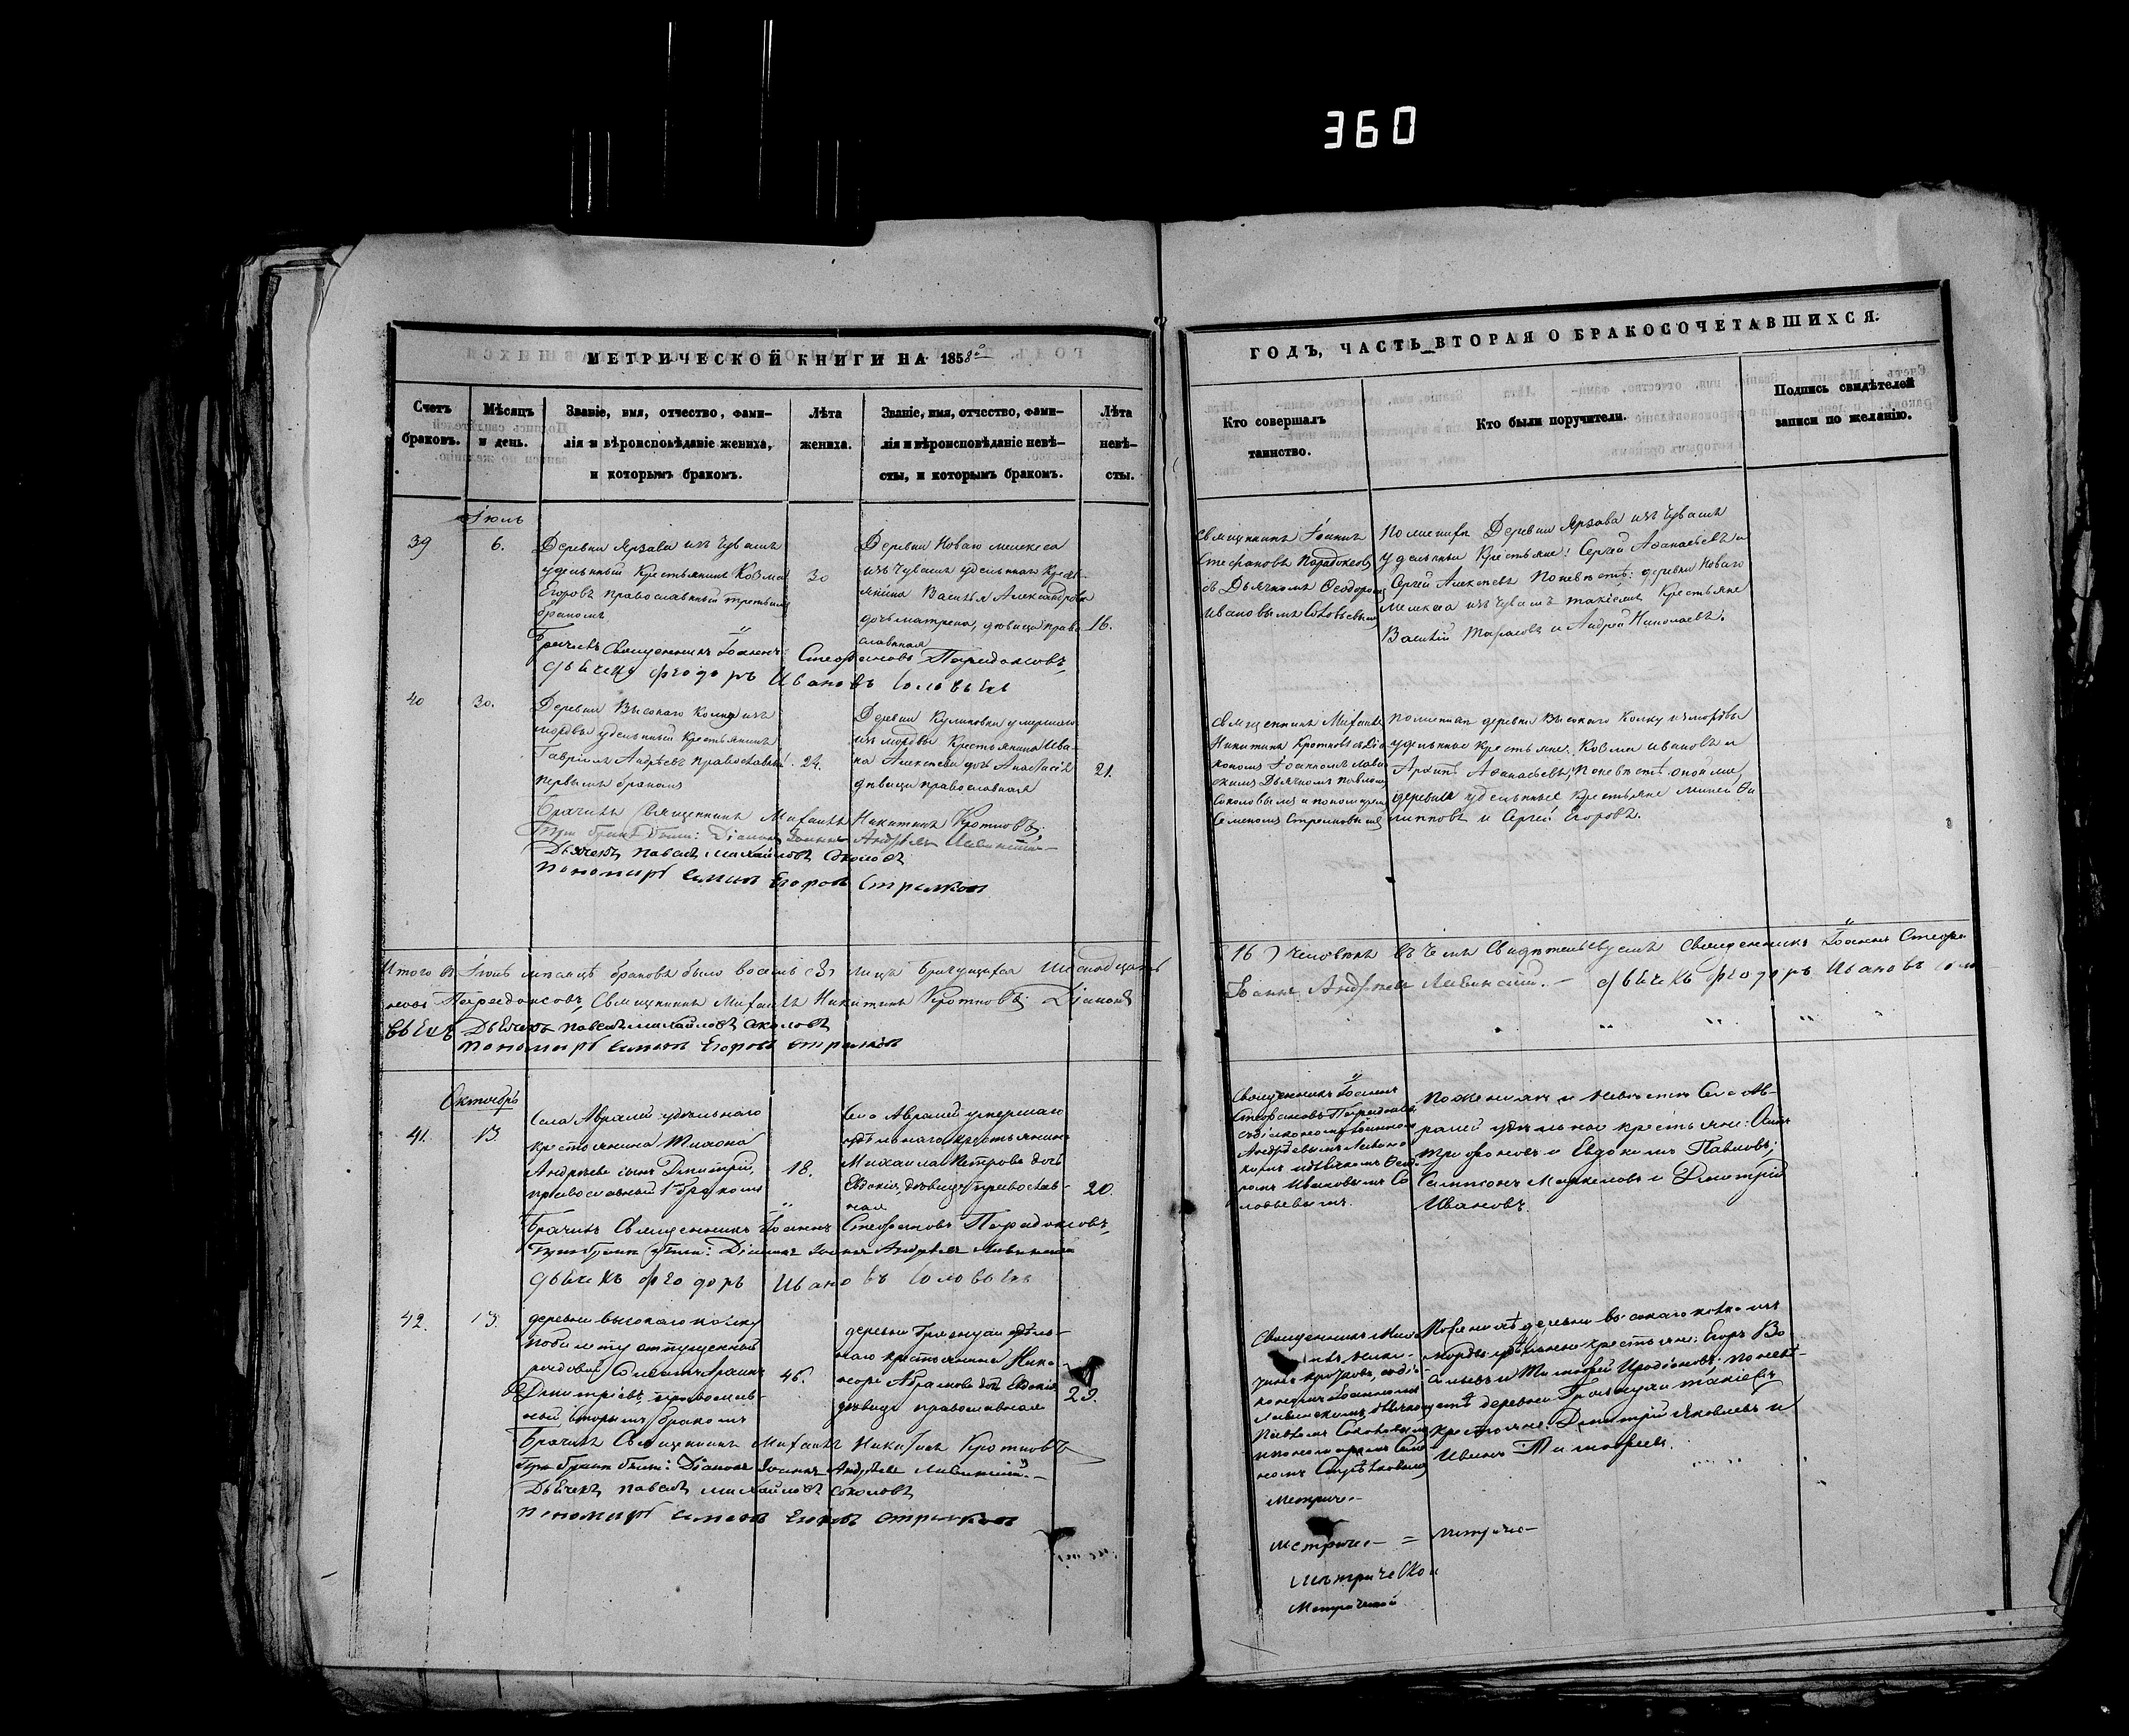 360
МЕТРИЧЕСКОЙ КНИГИ НА 1858й
Счетъ браковъ.
Мѣсяцъ и день.
Званіе, имя, отчество, фами-
лія и вѣроисповѣданіе жениха,
и которымъ бракомъ.
Лѣта жениха.
Званіе, имя, отчество, фами-
лія и вѣроисповѣданіе невѣ-
сты, и которымъ бракомъ.
Лѣта невѣ-
сты.
Іюль
39
6.
Деревни Ярзова изъ Чувашъ
удельный Крестьянинъ Козма
Егоровъ православный третьимъ
бракомъ
30
Деревни Новаго мелекеса
изъ Чувашъ удельнаго Кресть-
янина Василья Александрова
дочь матрена, девица право-
славная
16.
Брачилъ Священникъ Іоаннъ Стефановъ Парадоксовъ,
дьячекъ Феодоръ Ивановъ Соловьевъ
40
30.
Деревни Высокаго Колку изъ
мордвы удельный Крестьянинъ
Гавріилъ Андреевъ православный
первымъ бракомъ
24.
Деревни Куликовки умершаго
изъ мордвы Крестьянина Ива-
на Алексеева дочь Анастасія
девица православная
21.
Брачилъ Священникъ Никитинъ Кротковъ;
При бракѣ были: Діаконъ Іоаннъ Андреевъ Ливинскій
Дьячекъ Павелъ Михайловъ Соколовъ
пономарь Семенъ Егоровъ Стрелковъ
Итого въ Іюлѣ месяцѣ браковъ было восемь (8) лицъ брачущихся Шеснадцать
новъ Парадоксовъ, Священникъ Никитинъ Кротковъ; Діаконъ
вьевъ Дьячекъ Павелъ Михайловъ Соколовъ
пономарь Семенъ Егоровъ Стрелковъ
Октябрь
41.
13.
Села Авралей удельнаго
крестьянина
Андреева сынъ Дмитрій,
православный 1м бракомъ
18.
Село Авралей умершаго
удельнаго крестьянина
Михаила Петрова дочь
Евдокія, девица православ-
ная
20.
Брачилъ Священникъ Іоаннъ Стефановъ Парадоксовъ,
При бракѣ были: Діаконъ Іоаннъ Андреевъ Ливинскій
дьячекъ Феодоръ Ивановъ Соловьевъ
42.
13.
деревни высокаго колку
по билету отпущенный
рядовой
Дмитріевъ, православ-
ный вторымъ бракомъ
46.
деревни удель-
наго крестьянина Ника-
нора Абрамова дочь Евдокія
девица православная
29.
Брачилъ Священникъ Никитинъ Кротковъ
При бракѣ были: Діаконъ Іоаннъ Андреевъ Ливинскій.
Дьячекъ Павелъ Михайловъ Соколовъ
пономарь Семенъ Егоровъ Стрелковъ
ГОДЪ, ЧАСТЬ ВТОРАЯ О БРАКОСОЧЕТАВШИХСЯ.
Кто совершалъ
таинство.
Кто были поручители.
Подпись свидѣтелей
записи по желанію.
Священникъ Іоаннъ
Стефановъ Парадоксовъ
съ Дьячкомъ Феодоромъ
Ивановымъ Соловьевымъ
По женихѣ Деревни Ярзова изъ Чувашъ
удельныи Крестьяне: Сергей Афанасьевъ и
Сергей Алексеевъ По невестѣ: деревни Новаго
Мелекеса изъ Чувашъ такіежъ Крестьяне
Василій Тарасовъ и Андрей Николаевъ.
Священникъ
Никитинъ Кротковъ съ Діа-
кономъ Іоанномъ Ливи-
скимъ Дьячкомъ Павломъ
Соколовымъ и пономаремъ
Семеномъ Стрелковымъ
По женихѣ деревни Высокаго Колку изъ мордвы
удельные Крестьяне: Козма Ивановъ и
Архипъ Афанасьевъ; По невестѣ оной же
деревни удельные Крестьяне Миней Фи-
липповъ и Сергей Егоровъ.
(16) Человѣкъ въ чемъ Свидѣтельствуемъ Священникъ Іоаннъ Стефа-
Іоаннъ Андреевъ Ливинскій. - дьячекъ Феодоръ Ивановъ Соло-
Священникъ Іоаннъ
Стефановъ Парадоксовъ
съ діакономъ Іоанномъ
Андреевымъ Ливин-
скимъ и дьячкомъ Феодо-
ромъ Ивановымъ Со-
ловьевымъ.
По женихѣ и невестѣ Села Ав-
ралей удельные крестьяне:
Трофимовъ и Евдокимъ Павловъ;
Самсонъ и Дмитрій
Ивановъ.
Священникъ
Кротковъ, съ діа-
кономъ Іоанномъ
Ливинскимъ, дьячкомъ
Павломъ Соколовымъ
и пономаремъ Семе-
номъ Стрелковымъ
По женихѣ деревни высокаго колка изъ
мордвы удельные крестьяне: Егоръ
и Тимофей по неве-
стѣ деревни такіежъ
крестьяне: Дмитрій Яковлевъ и
Иванъ Тимофеевъ.
Метриче-
метриче- = метриче-
Метрической
Метрической